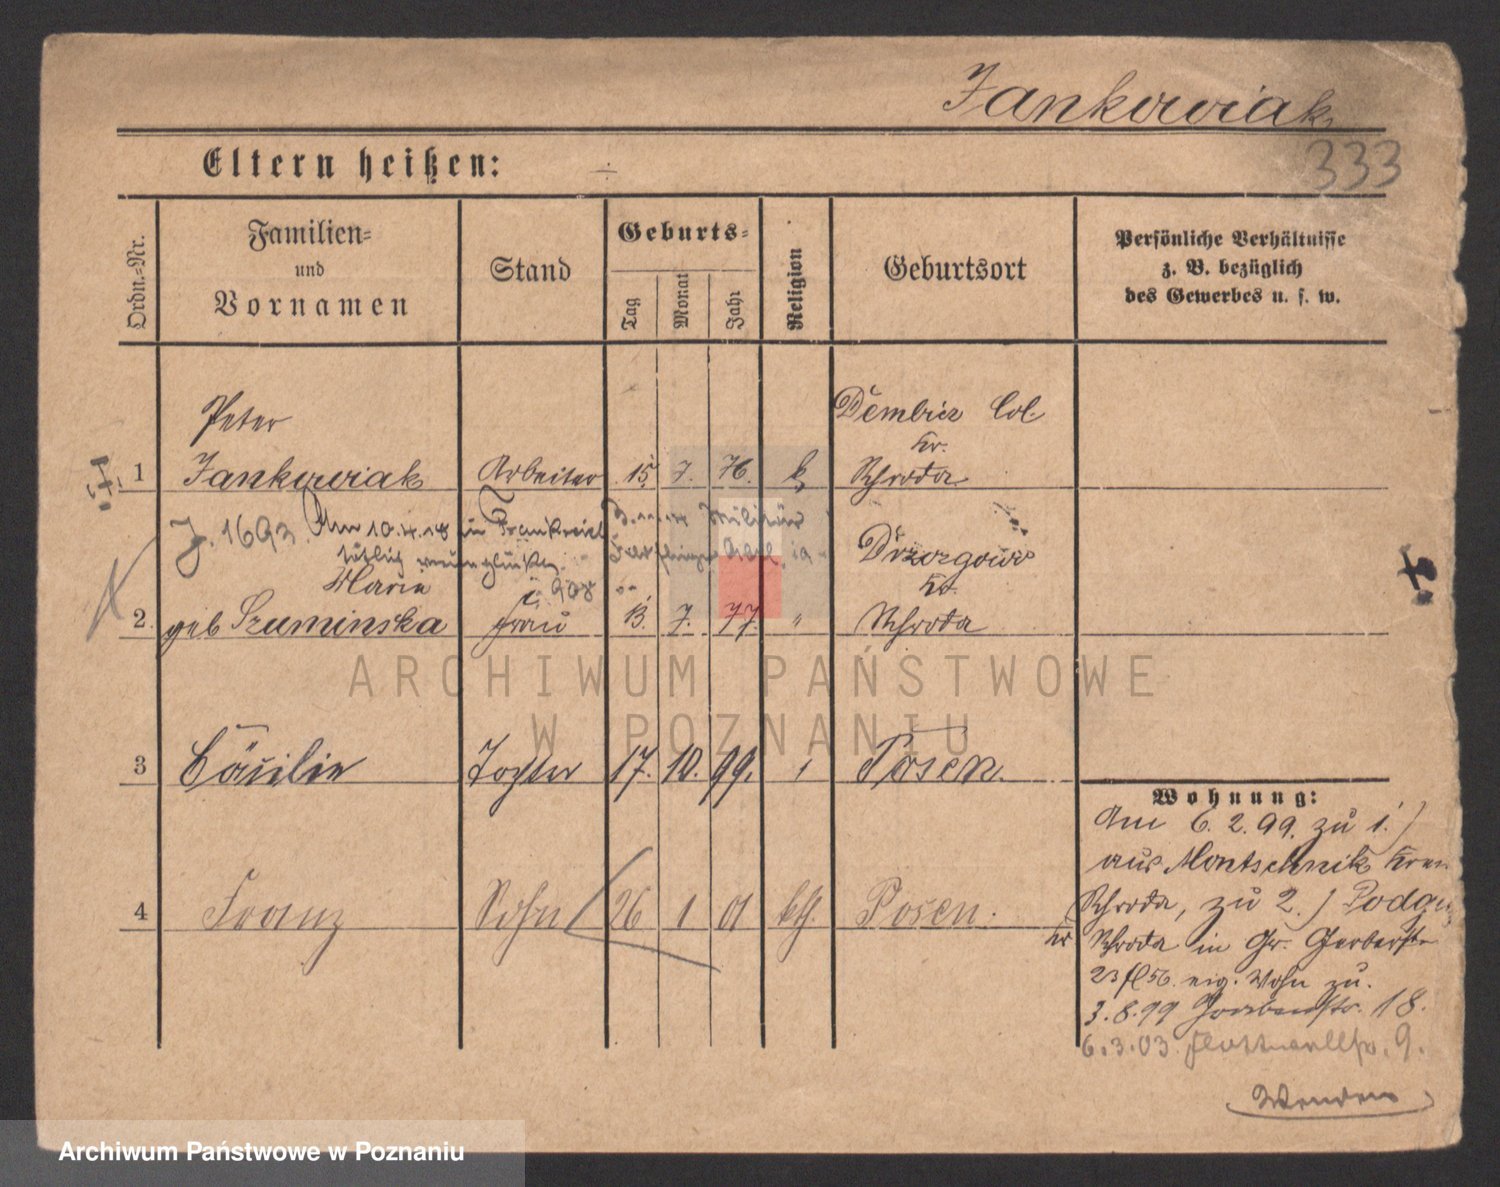 Jankowiak
333
Eltern heißen: ÷
Ordn.-Nr.
Familien- und Vornamen
Stand
Geburts-
Tag
Monat
Jahr
Religion
Geburtsort
Persönliche Verhältnisse
z. B. bezüglich
des Gewerbes u. s. w.
Peter
Dembicz Col.
Kr.
1 Jankowiak Arbeiter 15. 7. 76. k. Schroda
J. 1693. Am 10.4.18 in Frankreich
tötlich verunglückt.
Militär
Drzazgowo
Marie
Kr.
2. geb Szuminska Frau 13. 7. 77. " Schroda
ARCHIWUM PAŃSTWOWE
W POZNANIU
3 Cäcilie Tochter 17. 10. 99. Posen.
4 Franz Sohn 26 1 01 kth. Posen.
Wohnung:
Am 6. 2. 99. zu 1.)
aus Montschnik
Schroda, zu 2.)
Kr Schroda in Gr. Gerberstr
23 eig. Wohn zu.
3. 8. 99 Grabenstr. 18.
6.3.03. 9.
Wenden
Archiwum Państwowe w Poznaniu